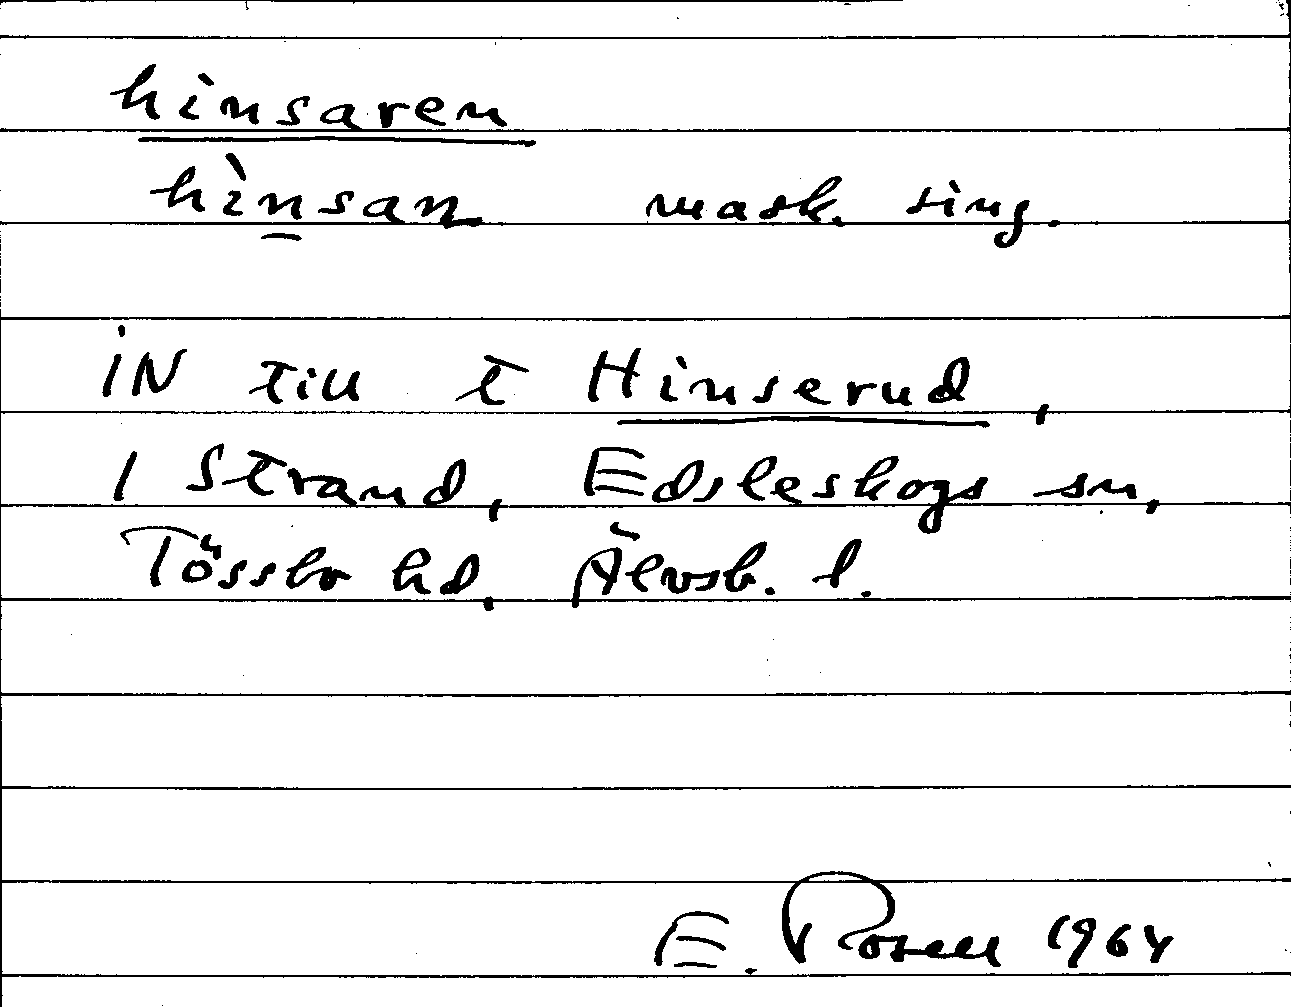 hinsaren
hìnsan mask. sing.
iN till t Hinserud,
I Strand, Edsleskogs sn,
Tössbo hd, Älvsb. l.
E. Rosell 1964